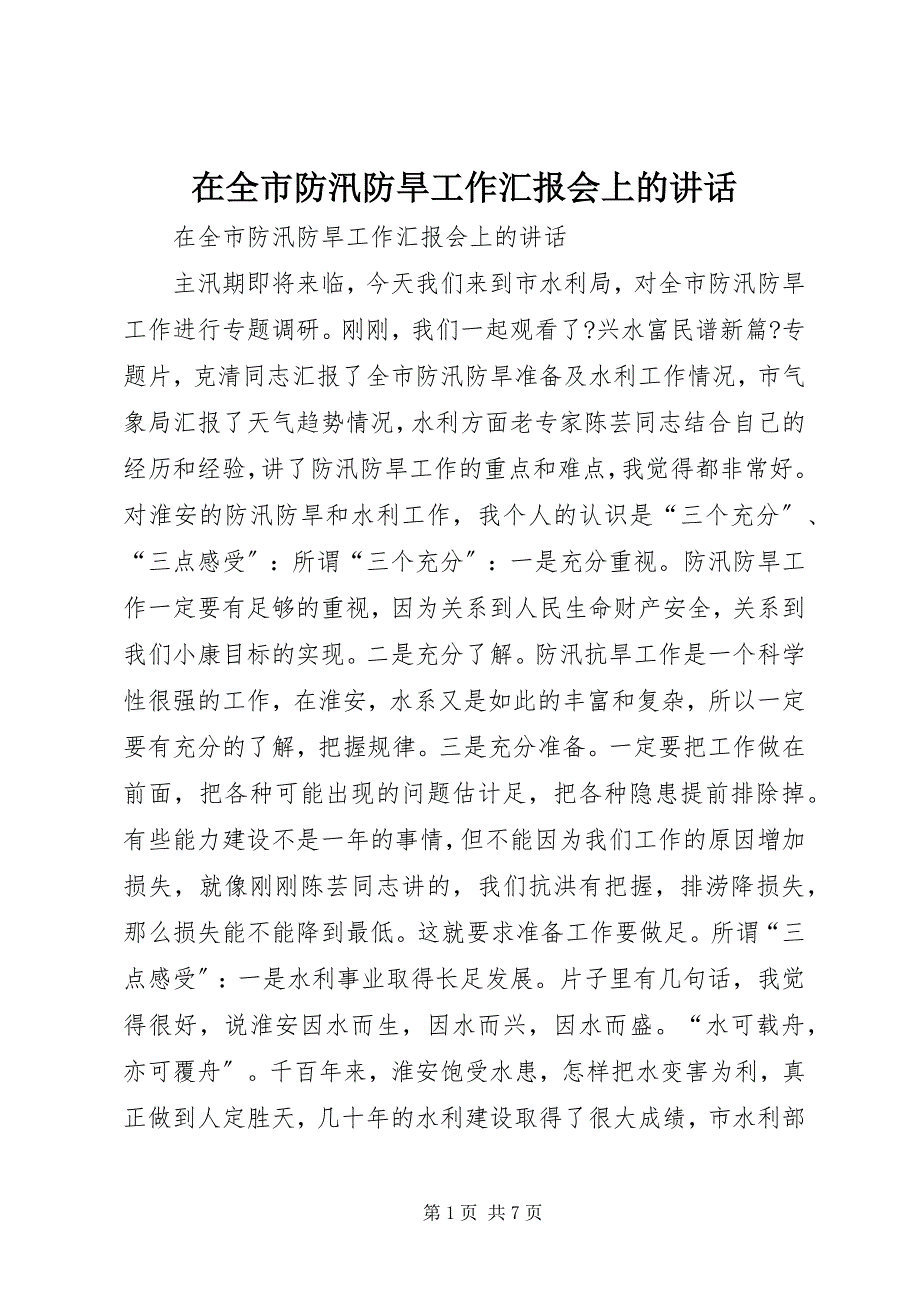 在全市防汛防旱工作汇报会上的讲话
在全市防汛防旱工作汇报会上的讲话
主汛期即将来临，今天我们来到市水利局，对全市防汛防旱
工作进行专题调研。刚刚，我们一起观看了?兴水富民谱新篇?专
题片，克清同志汇报了全市防汛防旱准备及水利工作情况，市气
象局汇报了天气趋势情况，水利方面老专家陈芸同志结合自己的
经历和经验，讲了防汛防旱工作的重点和难点，我觉得都非常好。
对淮安的防汛防旱和水利工作，我个人的认识是“三个充分〞、
“三点感受〞：所谓“三个充分〞：一是充分重视。防汛防旱工
作一定要有足够的重视，因为关系到人民生命财产安全，关系到
我们小康目标的实现。二是充分了解。防汛抗旱工作是一个科学
性很强的工作，在淮安，水系又是如此的丰富和复杂，所以一定
要有充分的了解，把握规律。三是充分准备。一定要把工作做在
前面，把各种可能出现的问题估计足，把各种隐患提前排除掉。
有些能力建设不是一年的事情，但不能因为我们工作的原因增加
损失，就像刚刚陈芸同志讲的，我们抗洪有把握，排涝降损失，
那么损失能不能降到最低。这就要求准备工作要做足。所谓“三
点感受〞：一是水利事业取得长足发展。片子里有几句话，我觉
得很好，说淮安因水而生，因水而兴，因水而盛。“水可载舟，
亦可覆舟〞。千百年来，淮安饱受水患，怎样把水变害为利，真
正做到人定胜天，几十年的水利建设取得了很大成绩，市水利部
第 1 页 共 7 页